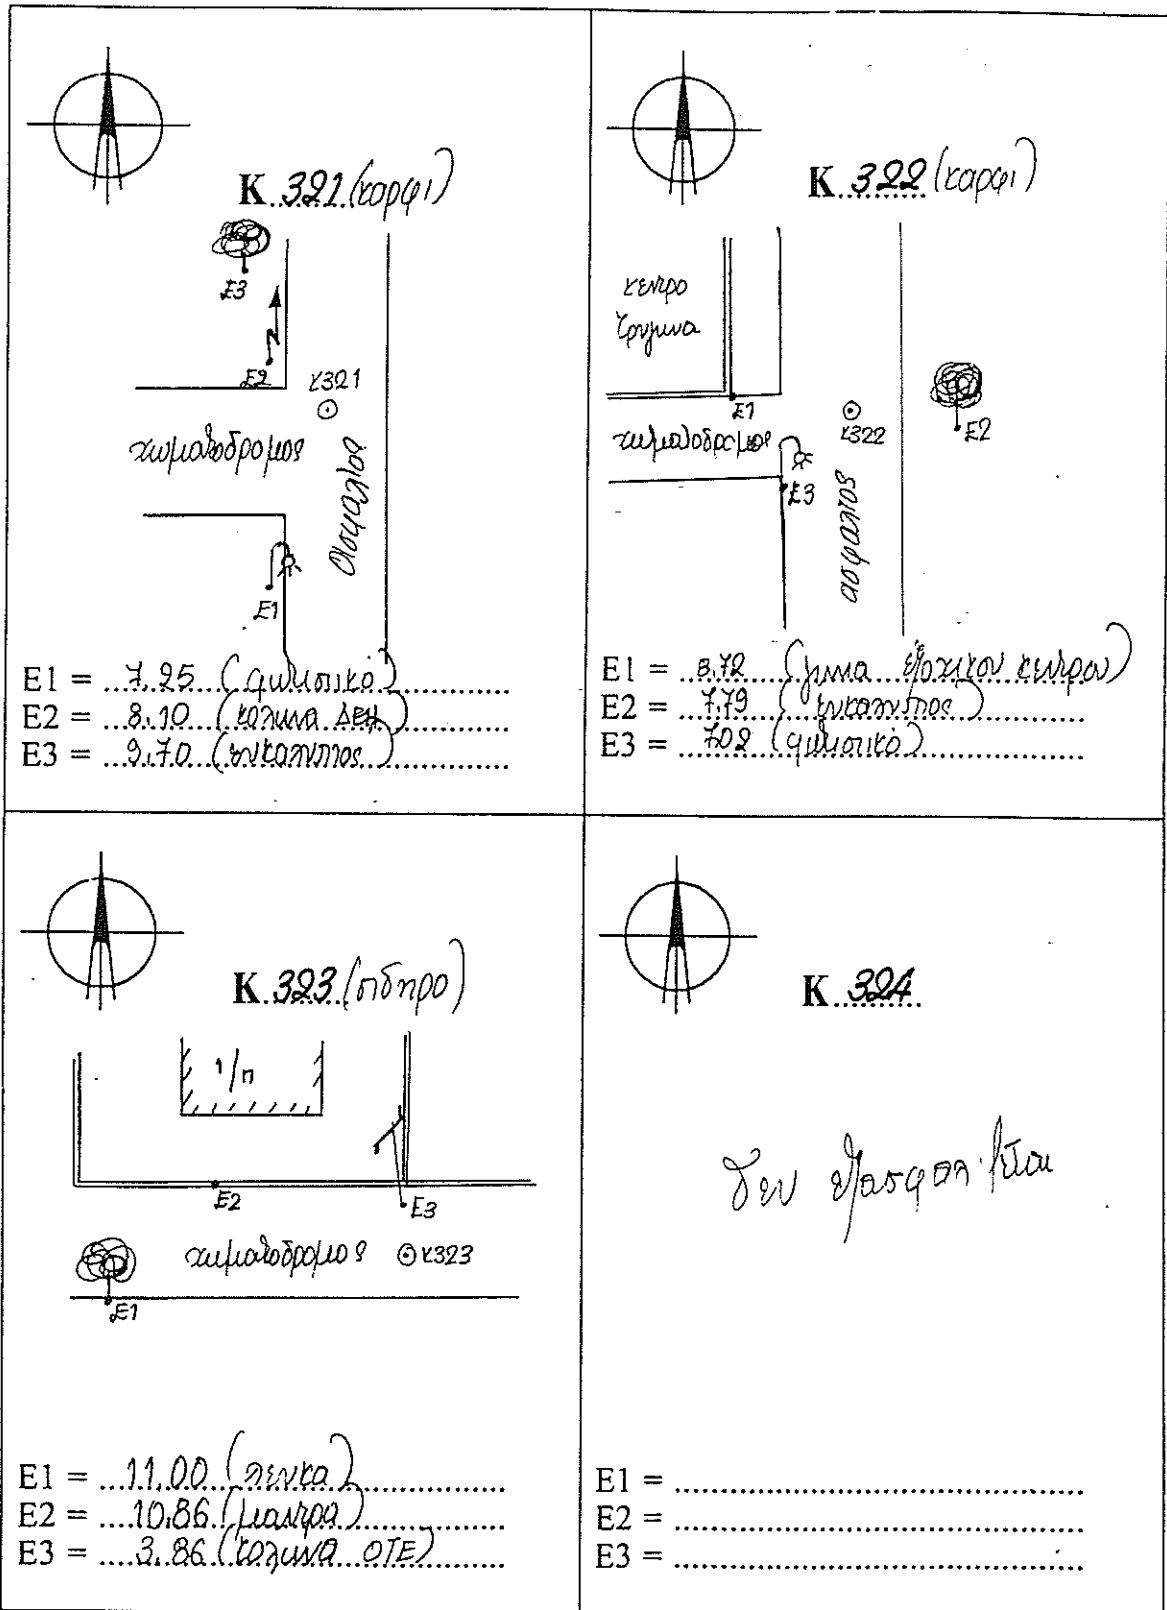 K 321 (καρφι)
E3
E2
K321
χωματοδρομος
ασφαλτος
E1
E1 = 7.25 (φωτιστικό)
E2 = 8.10 (κολωνα ΔΕΗ)
E3 = 9.70 (ευκαλυπτος)
K 322 (καρφι)
κεντρο
E1
K322
E2
χωματοδρομος
E3
ασφαλτος
E1 = 8.72 (γωνια εξοχικου κεντρου)
E2 = 7.79 (ευκαλυπτος)
E3 = 7.02 (φωτιστικό)
K 323 (σιδηρο)
1/π
E2
E3
χωματοδρομος K323
E1
E1 = 11.00 (πευκα)
E2 = 10.86 (μαντρα)
E3 = 3.86 (κολωνα ΟΤΕ)
K 324
δεν εξασφαλιζεται
E1 =
E2 =
E3 =